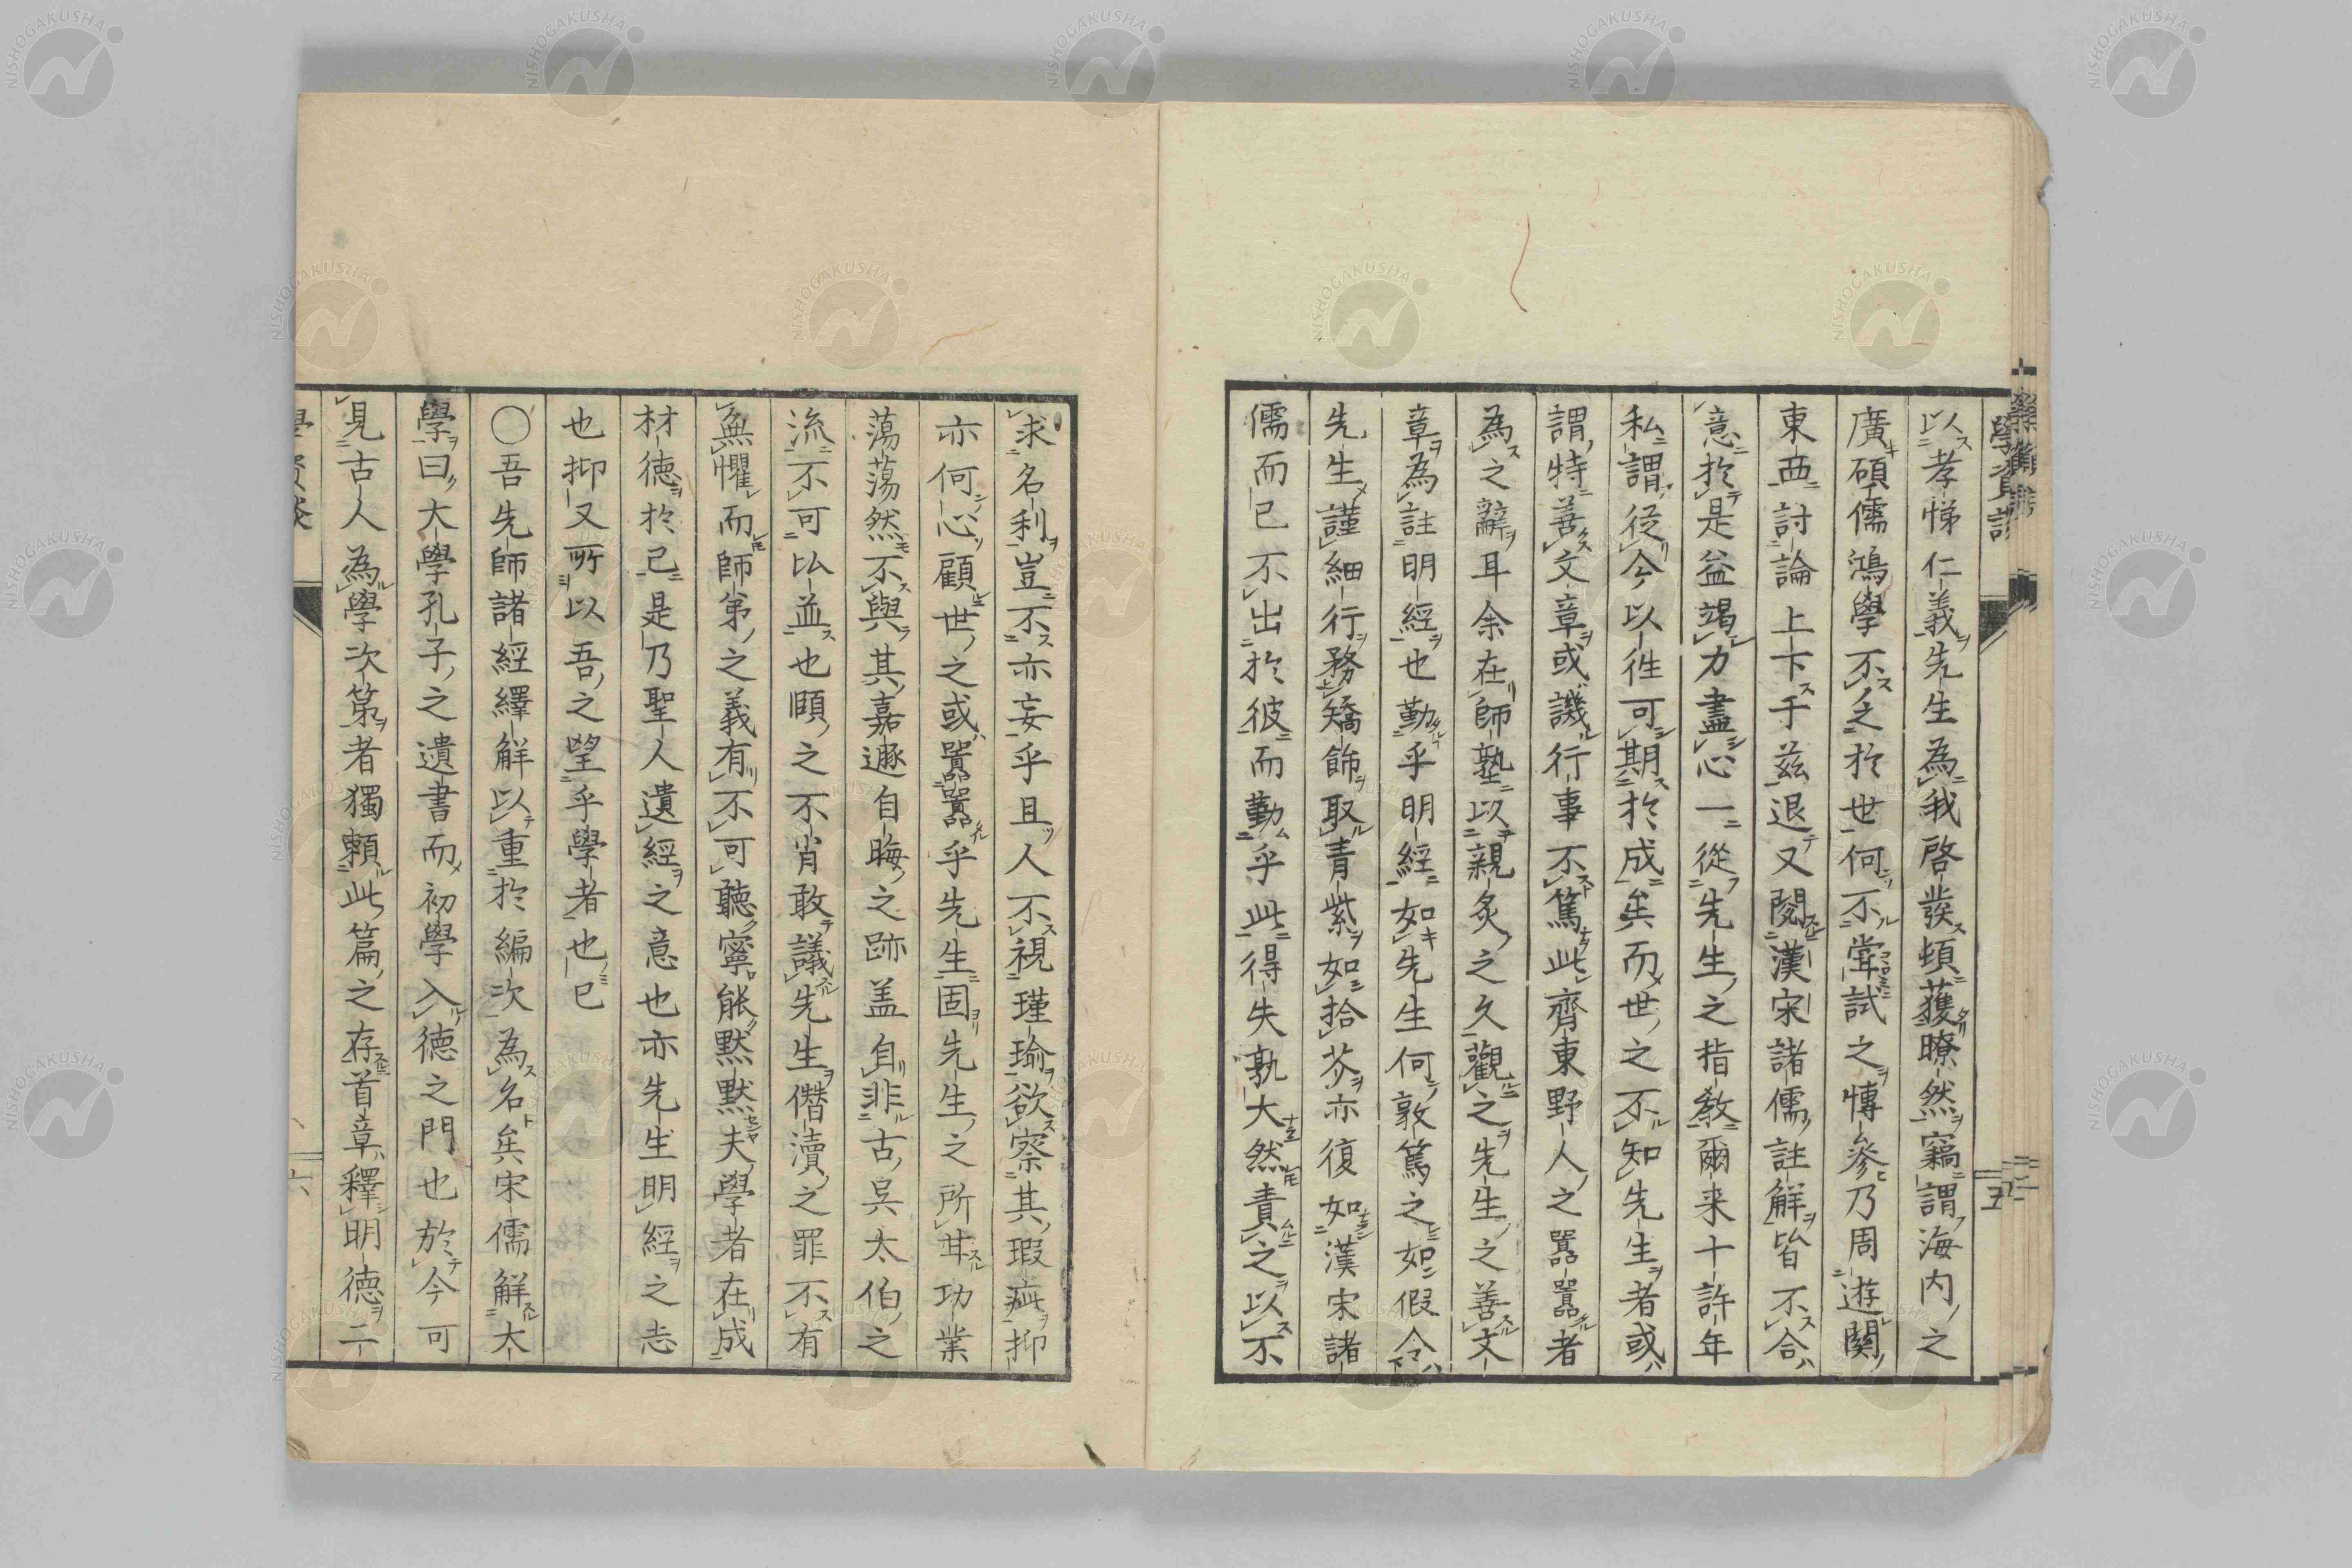 以孝悌仁義先生為我啓發頓獲瞭然竊謂海内之
廣碩儒鴻學不乏於世何不嘗試之慱參乃周遊關
東西討論上下手玆退又閲漢宋諸儒註解皆不合
意於是益竭力盡心一從先生之指教爾来十許年
私謂従今以往可期於成矣而世之不知先生者或
謂特善文章或譏行事不篤此齊東野人之囂囂者
為之辭耳余在師塾以親炙之久觀之先生之善文
章為註明經也勤乎明經如先生何敦篤之如假令
先生謹細行務矯飾取青紫如拾芥亦復如漢宋諸
儒而已不出於彼而勤乎此得失孰大然責之以不
求名利豈不亦妄乎且人不視瑾瑜欲察其瑕疵抑
亦何心顧世之或囂囂乎先生固先生之所甘功業
蕩蕩然不與其嘉遯自晦之跡盖自非古吳太伯之
流不可以並也頤之不肖敢議先生僭瀆之罪不有
無懼而師弟之義有不可聽寧能默默夫學者在成
材徳於己是乃聖人遺經之意也亦先生明經之志
也抑又所以吾之望乎學者也已
○吾先師諸經繹解以重於編次為名矣宋儒解大
學曰大學孔子之遺書而初學入徳之門也於今可
見古人為學次第者獨頼此篇之存首章釋明徳二
五
六
NISHOGAKUSHA